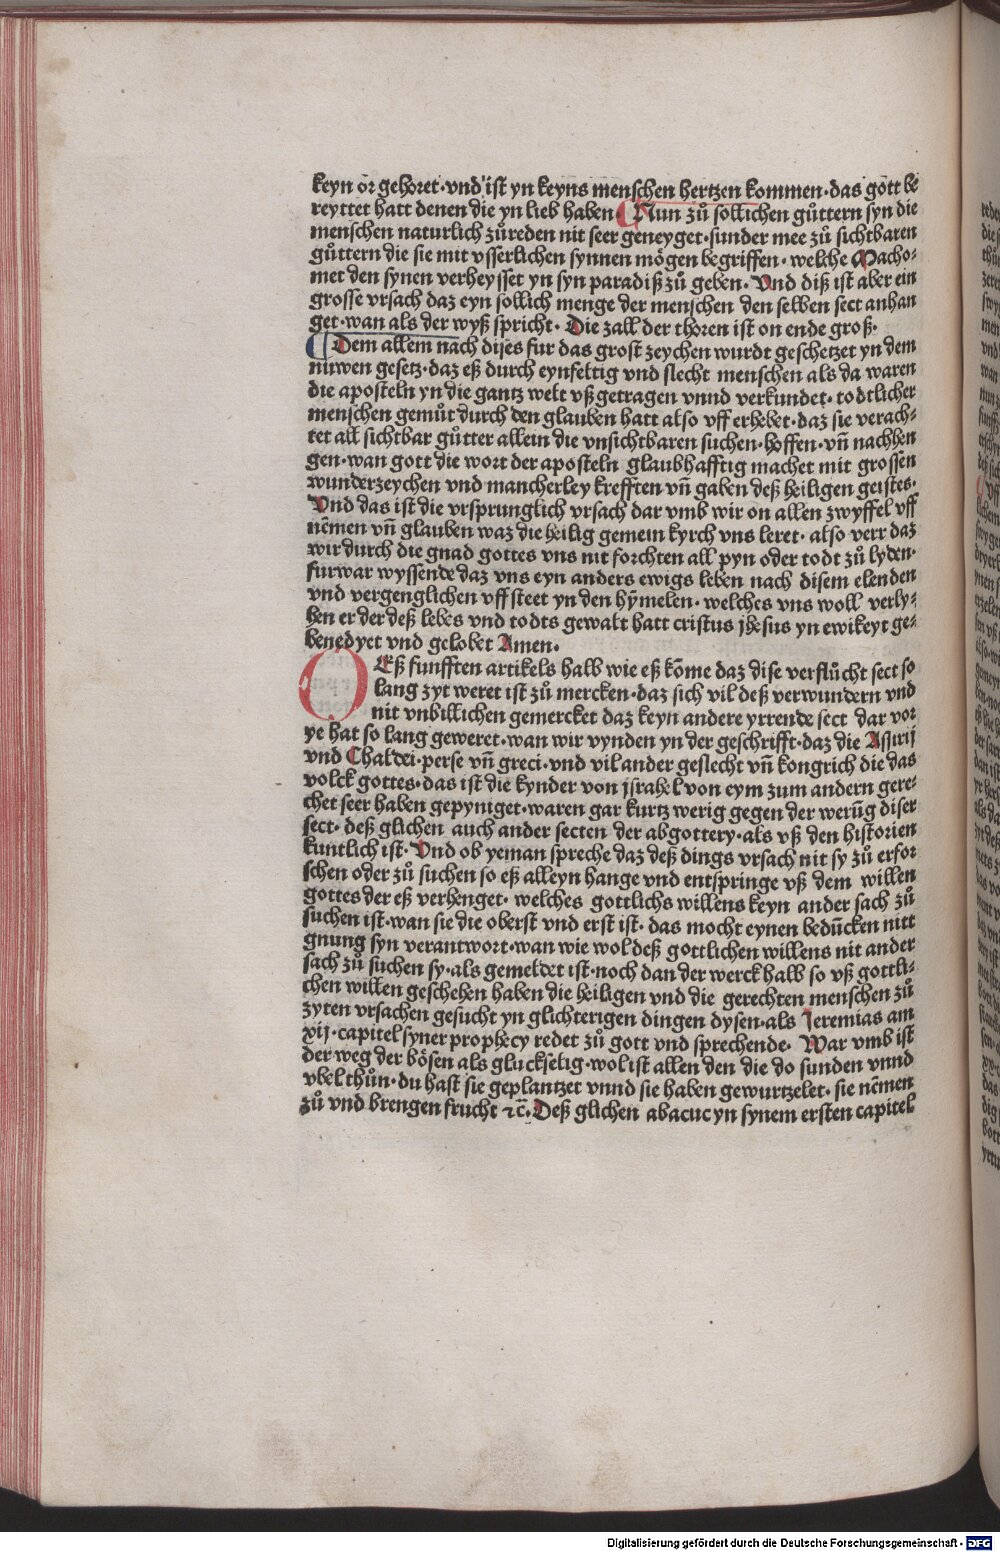 keyn or gehoret·vnd ist yn keyns menschen hertzen kommen·das gott be
reyttet hatt denen die yn lieb haben· Nun zů sollichen gůttern syn die
menschen naturlich zůreden nit seer geneyget·sunder mee zů sichtbaren
gůttern die sie mit vsserlichen synnen mögen begriffen·welche Macho⸗
met den synen verheysset yn syn paradiß zů geben· Vnd diß ist aber ein
grosse vrsach daz eyn sollich menge der menschen den selben sect anhan
get·wan als der wyß spricht· Die zall der thoren ist on ende groß·
Dem allem nach dises fur das grost zeychen wurdt geschetzet yn dem
nuwen gesetz·daz eß durch eynfeltig vnd slecht menschen als da waren
die aposteln yn die gantz welt vßgetragen vnnd verkundet·todtlicher
menschen gemůt durch den glauben hatt also vff erhebet·daz sie verach⸗
tet all sichtbar gůtter allein die vnsichtbaren suchen·hoffen·vñ nachhen
gen·wan gott die wort der aposteln glaubhafftig machet mit grossen
wunderzeychen vnd mancherley krefften vñ gaben deß heiligen geistes·
Vnd das ist die vrsprunglich vrsach dar vmb wir on allen zwyffel vff
nēmen vñ glauben waz die heilig gemein kyrch vns leret· also verr daz
wir durch die gnad gottes vns nit forchten all pyn oder todt zů lyden·
furwar wyssende daz vns eyn anders ewigs leben nach disem elenden
vnd vergenglichen vffsteet yn den hȳmelen·welches vns woll verly⸗
hen er der deß lebēs vnd todts gewalt hatt cristus jhesus yn ewikeyt ge⸗
benedyet vnd gelobet Amen·
DEß funfften artikels halb wie eß kōme daz dise verflůcht sect so
lang zyt weret ist zů mercken·daz sich vil deß verwundern vnd
nit vnbillichen gemercket daz keyn andere yrrende sect dar vor
ye hat so lang geweret·wan wir vynden yn der geschrifft·daz die Assirij
vnd Chaldei·perse vñ greci·vnd vil ander geslecht vñ kongrich die das
volck gottes·das ist die kynder von jsrahel von eym zum andern gere⸗
chet seer haben gepyniget·waren gar kurtz werig gegen der werūg diser
sect· deß glichen auch ander secten der abgottery·als vß den historien
kuntlich ist· Vnd ob yeman spreche daz deß dings vrsach nit sy zů erfor
schen oder zů suchen so eß alleyn hange vnd entspringe vß dem willen
gottes der eß verhenget· welches gottlichs willens keyn ander sach zů
suchen ist·wan sie die oberst vnd erst ist· das mocht eynen bedūcken nitt
gnung syn verantwort·wan wie wol deß gottlichen willens nit ander
sach zů suchen sy·als gemeldet ist·noch dan der werck halb so vß gottli⸗
chen willen geschehen haben die heiligen vnd die gerechten menschen zů
zyten vrsachen gesucht yn glichterigen dingen dysen·als Jeremias am
xij·capitel syner prophecy redet zů gott vnd sprechende· War vmb ist
der weg der bösen als gluckselig·wol ist allen den die do sunden vnnd
vbel thůn·du hast sie geplantzet vnnd sie haben gewurtzelet· sie nēmen
zů vnd brengen frucht ⁊c̄· Deß glichen abacuc yn synem ersten capitel
Digitalisierung gefördert durch die Deutsche Forschungsgemeinschaft - DFG